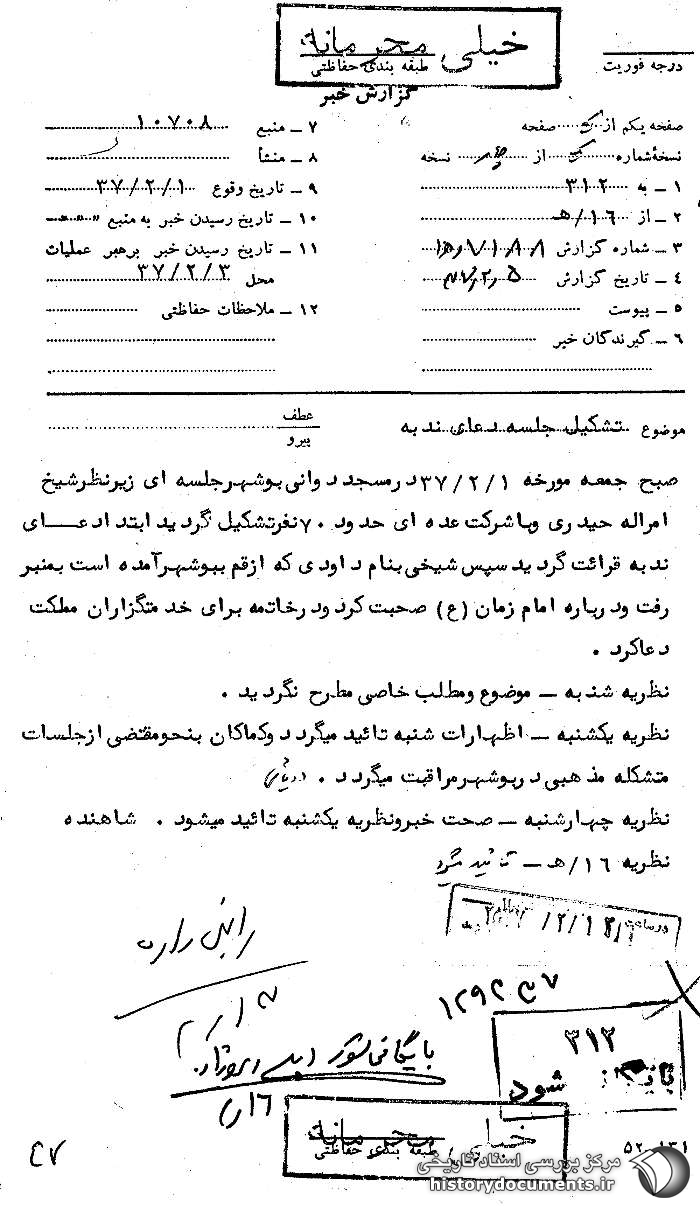 خیلی محرمانه
طبقه بندی حفاظتی
درجه فوریت
گزارش خبر
صفحه یکم از یک صفحه
نسخهٔ شماره یک از چهار نسخه
۱ ـ به ۳۱۲
۲ ـ از ۱۶/هـ
۳ ـ شماره گزارش
۴ ـ تاریخ گزارش
۵ ـ پیوست
۶ ـ گیرندگان خبر
۷ ـ منبع ۱۰۷۰۸
۸ ـ منشأ
۹ ـ تاریخ وقوع ۳۷/۲/۱
۱۰ ـ تاریخ رسیدن خبر به منبع " " "
۱۱ ـ تاریخ رسیدن خبر برهبر عملیات
محل ۳۷/۲/۳
۱۲ ـ ملاحظات حفاظتی
موضوع تشکیل جلسه دعای ندبه
عطف
پیرو
صبح جمعه مورخه ۳۷/۲/۱ درمسجد دوانی بوشهرجلسه ای زیرنظرشیخ
امراله حیدری وباشرکت عده ای حدود ۷۰ نفرتشکیل گردید ابتدا دعـــای
ندبه قرائت گردید سپس شیخی بنام داودی که ازقم ببوشهرآمده است بمنبر
رفت ودرباره امام زمان (ع) صحبت کرد ودرخاتمه برای خدمتگزاران مملکت
دعاکرد .
نظریه شنبه ـ موضوع ومطلب خاصی مطرح نگردید .
نظریه یکشنبه ـ اظهارات شنبه تائید میگردد وکماکان بنحومقتضی ازجلسات
متشکله مذهبی دربوشهرمراقبت میگردد .
نظریه چهارشنبه ـ صحت خبرونظریه یکشنبه تائید میشود . شاهنده
نظریه ۱۶/هـ ـ تائید میگردد
در ساعت
۳۱۲
شود
خیلی محرمانه
طبقه بندی حفاظتی
۴۷
مرکز بررسی اسناد تاریخی
historydocuments.ir